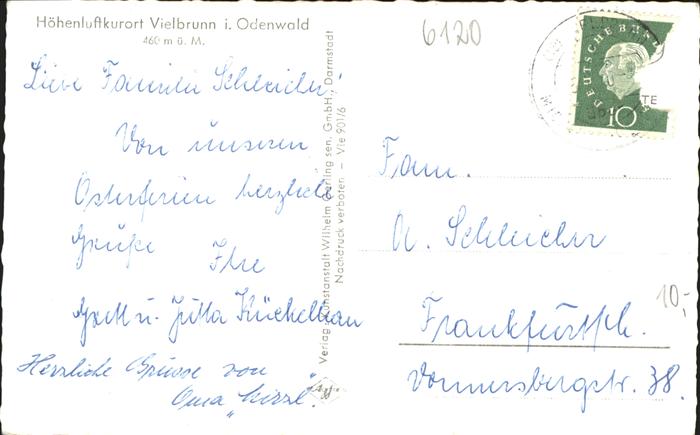 Höhenluftkurort Vielbrunn i. Odenwald
460 m ü. M.
6120
Liebe Familie Schleicher!
Von unseren
Osterferien herzliche
Grüße Ihre
Gretl u. Jutta Küchelhan
Herzliche Grüsse von
Oma
Verlag: Kunstanstalt Wilhelm Gerling sen. GmbH., Darmstadt
Nachdruck verboten – Vie 901/6
DEUTSCHE BUND
10
TE
Fam.
A. Schleicher
10,-
Frankfurt
38.